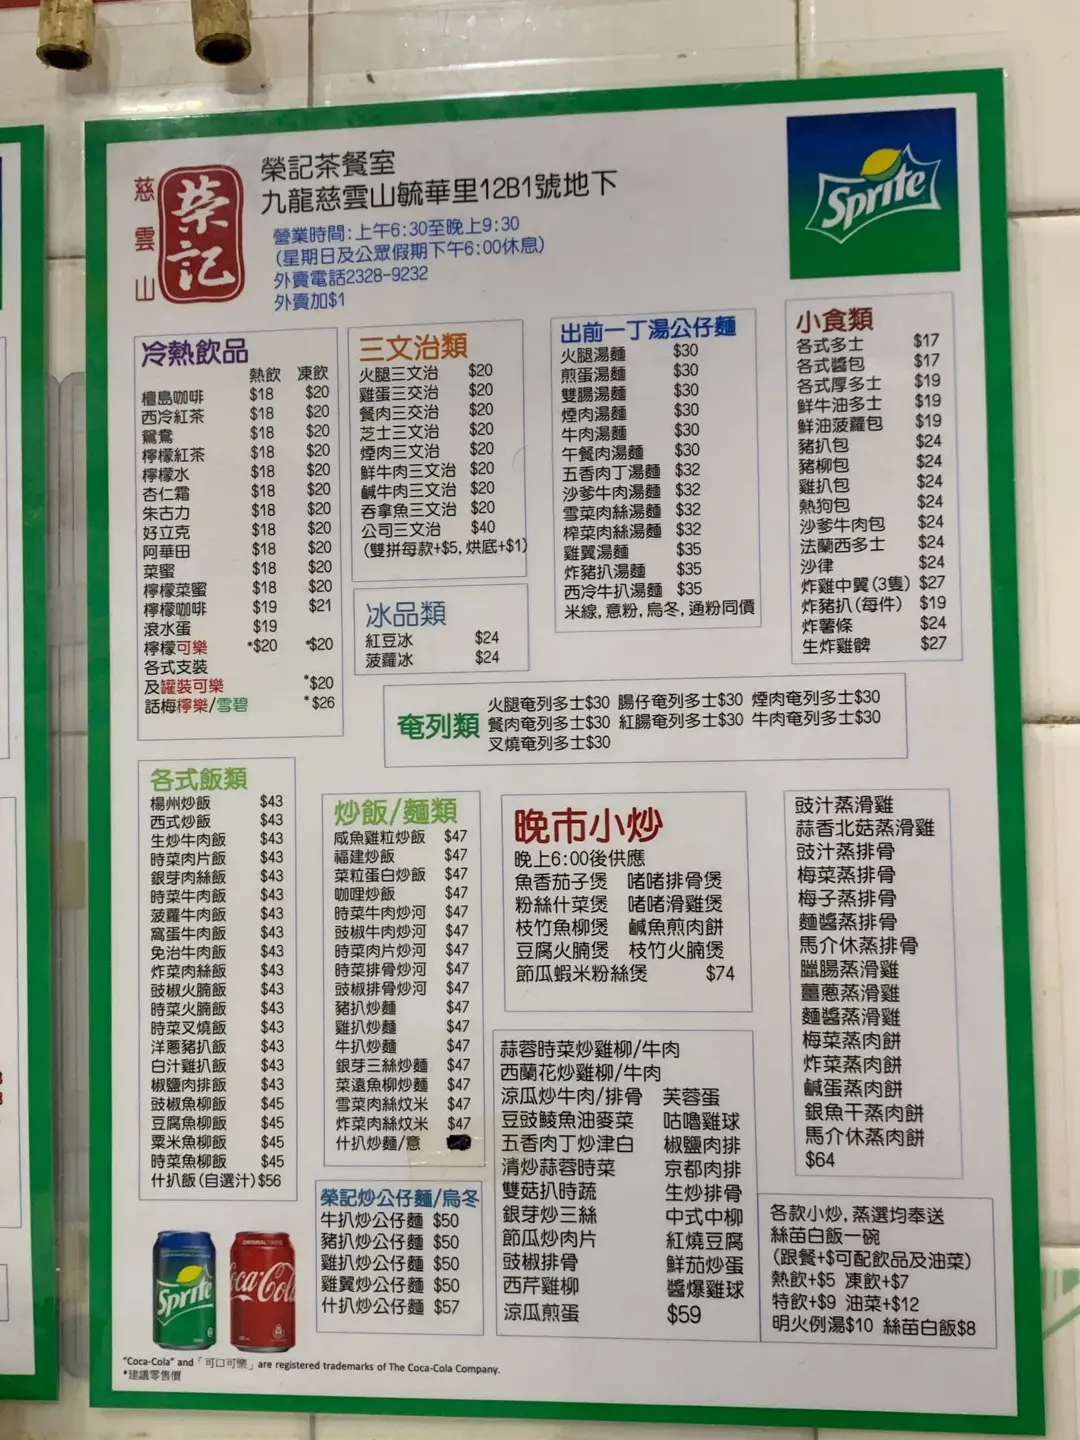 慈雲山
榮記
榮記茶餐室
九龍慈雲山毓華里12B1號地下
營業時間:上午6:30至晚上9:30
(星期日及公眾假期下午6:00休息)
外賣電話2328-9232
外賣加$1
Sprite
冷熱飲品
熱飲 凍飲
檀島咖啡 $18 $20
西冷紅茶 $18 $20
鴛鴦 $18 $20
檸檬紅茶 $18 $20
檸檬水 $18 $20
杏仁霜 $18 $20
朱古力 $18 $20
好立克 $18 $20
阿華田 $18 $20
菜蜜 $18 $20
檸檬菜蜜 $18 $20
檸檬咖啡 $19 $21
滾水蛋 $19
檸檬可樂 *$20 *$20
各式支裝
及罐裝可樂 *$20
話梅檸樂/雪碧 *$26
三文治類
火腿三文治 $20
雞蛋三交治 $20
餐肉三交治 $20
芝士三文治 $20
煙肉三文治 $20
鮮牛肉三文治 $20
鹹牛肉三文治 $20
吞拿魚三文治 $20
公司三文治 $40
(雙拼每款+$5,烘底+$1)
冰品類
紅豆冰 $24
菠蘿冰 $24
出前一丁湯公仔麵
火腿湯麵 $30
煎蛋湯麵 $30
雙腸湯麵 $30
煙肉湯麵 $30
牛肉湯麵 $30
午餐肉湯麵 $30
五香肉丁湯麵 $32
沙爹牛肉湯麵 $32
雪菜肉絲湯麵 $32
榨菜肉絲湯麵 $32
雞翼湯麵 $35
炸豬扒湯麵 $35
西冷牛扒湯麵 $35
米線,意粉,烏冬,通粉同價
小食類
各式多士 $17
各式醬包 $17
各式厚多士 $19
鮮牛油多士 $19
鮮油菠蘿包 $19
豬扒包 $24
豬柳包 $24
雞扒包 $24
熱狗包 $24
沙爹牛肉包 $24
法蘭西多士 $24
沙律 $24
炸雞中翼(3隻) $27
炸豬扒(每件) $19
炸薯條 $24
生炸雞髀 $27
奄列類
火腿奄列多士$30 腸仔奄列多士$30 煙肉奄列多士$30
餐肉奄列多士$30 紅腸奄列多士$30 牛肉奄列多士$30
叉燒奄列多士$30
各式飯類
楊州炒飯 $43
西式炒飯 $43
生炒牛肉飯 $43
時菜肉片飯 $43
銀芽肉絲飯 $43
時菜牛肉飯 $43
菠蘿牛肉飯 $43
窩蛋牛肉飯 $43
免治牛肉飯 $43
炸菜肉絲飯 $43
豉椒火腩飯 $43
時菜火腩飯 $43
時菜叉燒飯 $43
洋蔥豬扒飯 $43
白汁雞扒飯 $43
椒鹽肉排飯 $43
豉椒魚柳飯 $45
豆腐魚柳飯 $45
粟米魚柳飯 $45
時菜魚柳飯 $45
什扒飯(自選汁) $56
炒飯/麵類
咸魚雞粒炒飯 $47
福建炒飯 $47
菜粒蛋白炒飯 $47
咖哩炒飯 $47
時菜牛肉炒河 $47
豉椒牛肉炒河 $47
時菜肉片炒河 $47
時菜排骨炒河 $47
豉椒排骨炒河 $47
豬扒炒麵 $47
雞扒炒麵 $47
牛扒炒麵 $47
銀芽三絲炒麵 $47
菜遠魚柳炒麵 $47
雪菜肉絲炆米 $47
炸菜肉絲炆米 $47
什扒炒麵/意
榮記炒公仔麵/烏冬
牛扒炒公仔麵 $50
豬扒炒公仔麵 $50
雞扒炒公仔麵 $50
雞翼炒公仔麵 $50
什扒炒公仔麵 $57
晚市小炒
晚上6:00後供應
魚香茄子煲 啫啫排骨煲
粉絲什菜煲 啫啫滑雞煲
枝竹魚柳煲 鹹魚煎肉餅
豆腐火腩煲 枝竹火腩煲
節瓜蝦米粉絲煲 $74
蒜蓉時菜炒雞柳/牛肉
西蘭花炒雞柳/牛肉
涼瓜炒牛肉/排骨 芙蓉蛋
豆豉鯪魚油麥菜 咕嚕雞球
五香肉丁炒津白 椒鹽肉排
清炒蒜蓉時菜 京都肉排
雙菇扒時蔬 生炒排骨
銀芽炒三絲 中式牛柳
節瓜炒肉片 紅燒豆腐
豉椒排骨 鮮茄炒蛋
西芹雞柳 醬爆雞球
涼瓜煎蛋 $59
豉汁蒸滑雞
蒜香北菇蒸滑雞
豉汁蒸排骨
梅菜蒸排骨
梅子蒸排骨
麵醬蒸排骨
馬介休蒸排骨
臘腸蒸滑雞
薑蔥蒸滑雞
麵醬蒸滑雞
梅菜蒸肉餅
炸菜蒸肉餅
鹹蛋蒸肉餅
銀魚干蒸肉餅
馬介休蒸肉餅
$64
各款小炒,蒸選均奉送
絲苗白飯一碗
(跟餐+$可配飲品及油菜)
熱飲+$5 凍飲+$7
特飲+$9 油菜+$12
明火例湯$10 絲苗白飯$8
Sprite
Coca-Cola
"Coca-Cola" and「可口可樂」are registered trademarks of The Coca-Cola Company.
*建議零售價